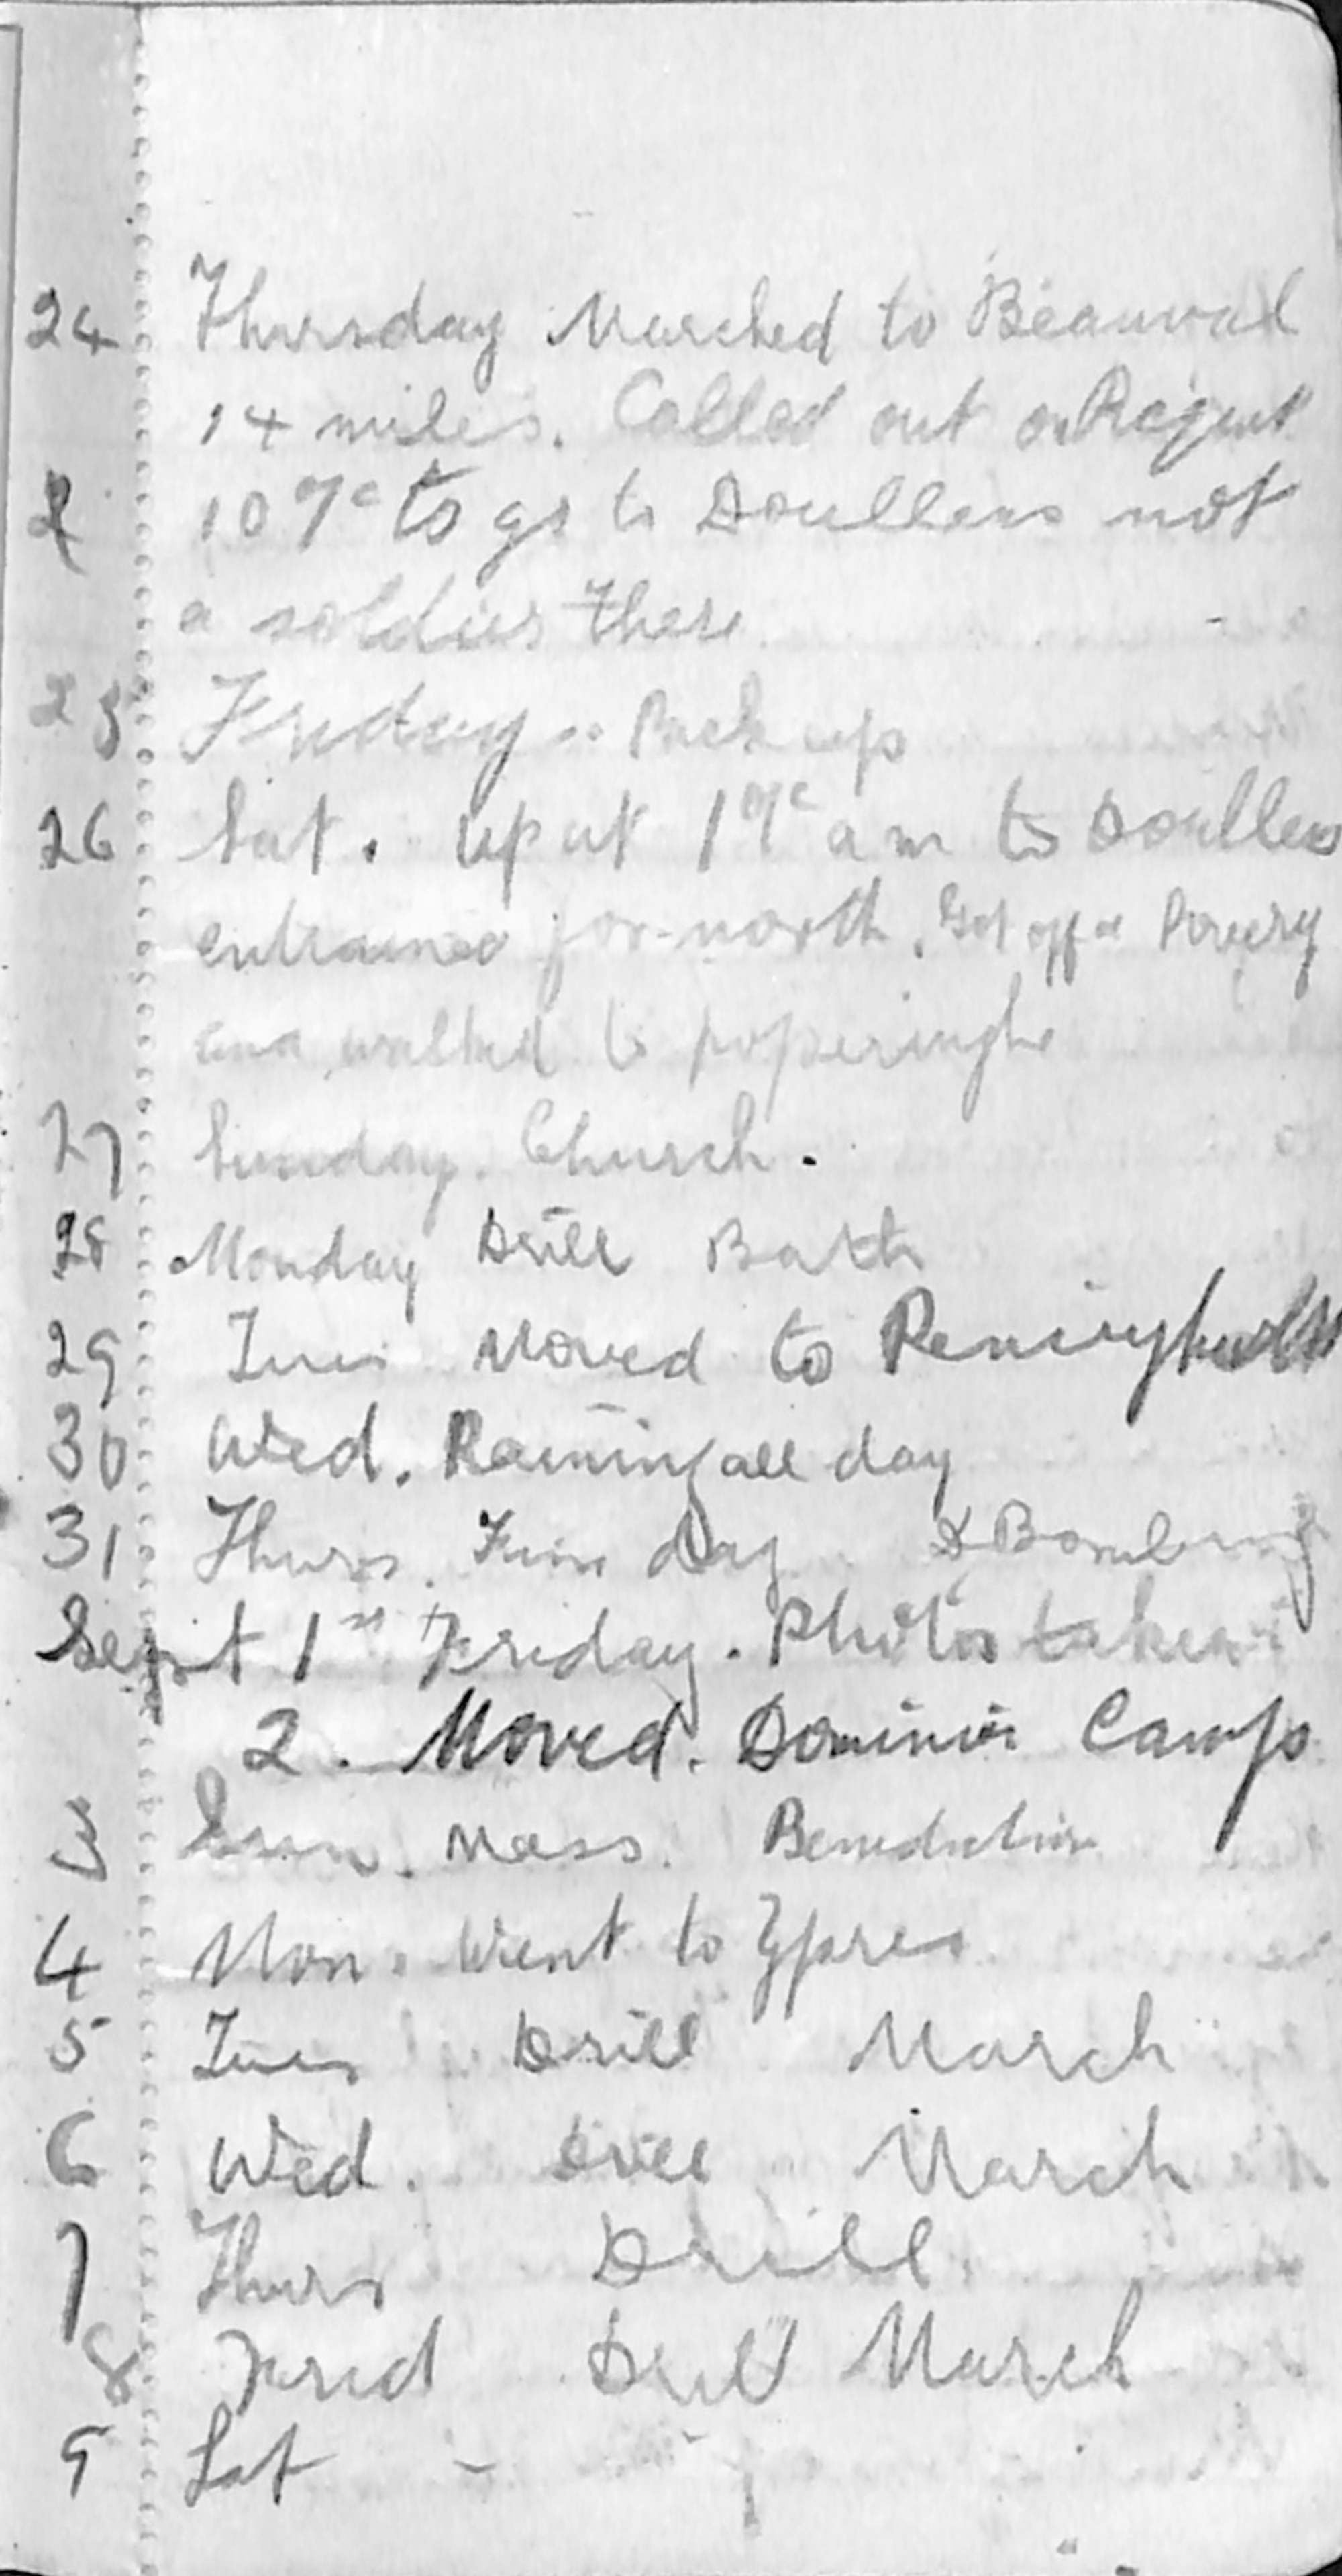 24 Thursday Marched to Beauval
14 miles. Called out on Piquet
10 o/c to go to Doullens not
a soldier there
25 Friday .. Pack up
26 Sat. up at 1 o/c am to Doullens
entrained for north. Got off at
and walked to poperinghe
27 Sunday. Church.
28 Monday Drill Bath
29 Tues Moved to
30 Wed. Raining all day
31 Thurs. Fine day & Bombing
Sept 1st Friday. Photos taken
2. Moved. Dominion Camp
3 Sun. Mass. Benediction
4 Mon. Went to Ypres
5 Tues Drill March
6 Wed. Drill March
7 Thurs Drill
8 Frid Drill March
9 Sat -